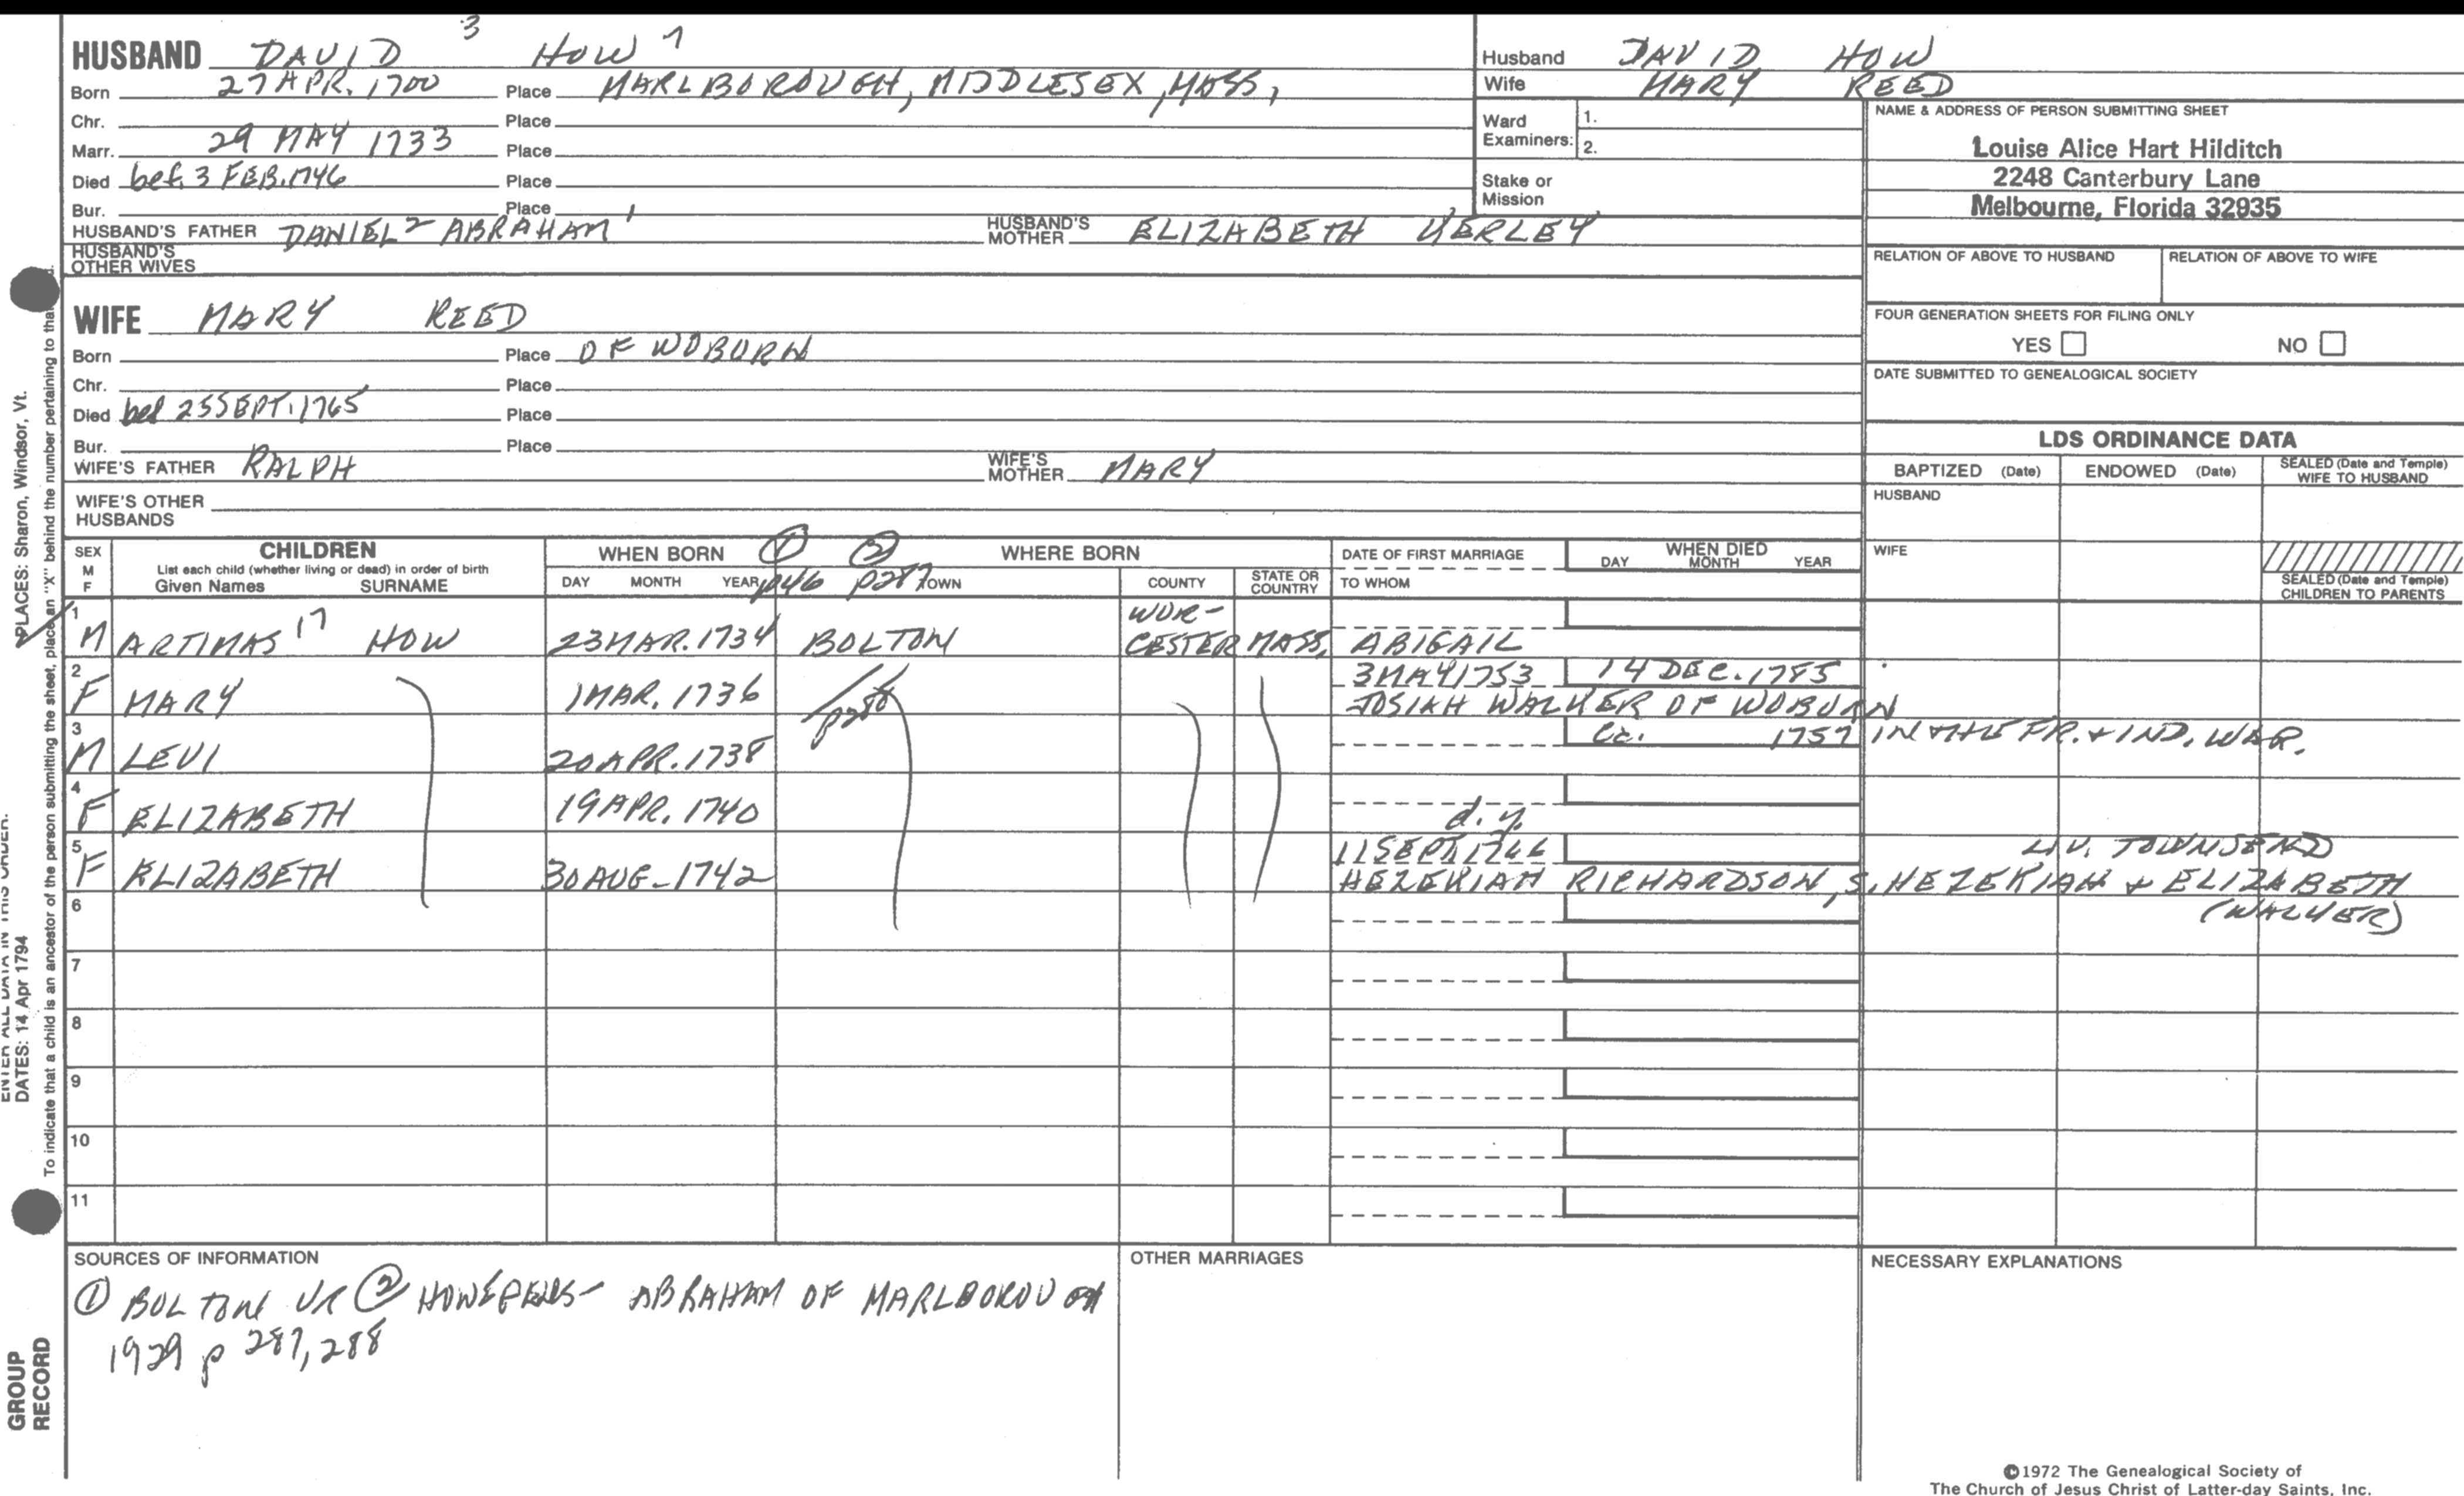 3 1
HUSBAND DAVID HOW
Husband DAVID HOW
Born 27 APR. 1700 Place MARLBOROUGH, MIDDLESEX, MASS,
Wife MARY REED
Chr. Place
Marr. 29 MAY 1733 Place
Died bef. 3 FEB. 1746 Place
Bur. Place
HUSBAND'S FATHER DANIEL 2 ABRAHAM 1 HUSBAND'S MOTHER ELIZABETH KERLEY
HUSBAND'S OTHER WIVES
Ward Examiners: 1.
2.
Stake or Mission
NAME & ADDRESS OF PERSON SUBMITTING SHEET
Louise Alice Hart Hilditch
2248 Canterbury Lane
Melbourne, Florida 32935
RELATION OF ABOVE TO HUSBAND RELATION OF ABOVE TO WIFE
WIFE MARY REED
Born Place OF WOBURN
Chr. Place
Died bef 25 SEPT. 1765 Place
Bur. Place
WIFE'S FATHER RALPH WIFE'S MOTHER MARY
WIFE'S OTHER HUSBANDS
FOUR GENERATION SHEETS FOR FILING ONLY
YES NO
DATE SUBMITTED TO GENEALOGICAL SOCIETY
LDS ORDINANCE DATA
BAPTIZED (Date) ENDOWED (Date) SEALED (Date and Temple) WIFE TO HUSBAND
HUSBAND
WIFE
SEALED (Date and Temple) CHILDREN TO PARENTS
SEX M F
CHILDREN
List each child (whether living or dead) in order of birth
Given Names SURNAME
WHEN BORN ① ② WHERE BORN
DAY MONTH YEAR p46 p287 TOWN COUNTY STATE OR COUNTRY
DATE OF FIRST MARRIAGE
TO WHOM
WHEN DIED
DAY MONTH YEAR
1 M ARTIMAS 17 HOW 23 MAR. 1734 BOLTON WOR-CESTER MASS. ABIGAIL
2 3 MAY 1753 14 DEC. 1785
F MARY 1 MAR. 1736 p288 JOSIAH WALKER OF WOBURN
3 ca. 1757 IN THE FR. + IND. WAR.
M LEVI 20 APR. 1738
4 F ELIZABETH 19 APR. 1740 d.y.
5 11 SEPT 1766 LIV. TOWNSEND
F ELIZABETH 30 AUG. 1742 HEZEKIAH RICHARDSON, S. HEZEKIAH + ELIZABETH
(WALKER)
6
7
8
9
10
11
SOURCES OF INFORMATION
① BOLTON VR ② HOWE GENS- ABRAHAM OF MARLBOROUGH
1929 p 287, 288
OTHER MARRIAGES
NECESSARY EXPLANATIONS
©1972 The Genealogical Society of
The Church of Jesus Christ of Latter-day Saints, Inc.
PLACES: Sharon, Windsor, Vt.
ENTER ALL DATA IN THIS ORDER:
DATES: 14 Apr 1794
To indicate that a child is an ancestor of the person submitting the sheet, place an "X" behind the number pertaining to that
GROUP
RECORD